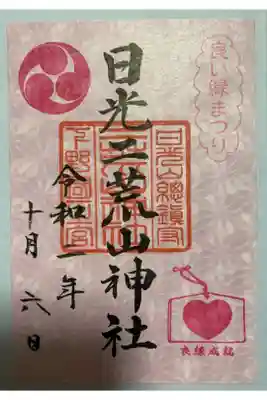 良い縁まつり
日光二荒山神社
日光山總鎮守
下野國一宮
令和二年
十月六日
良縁成就